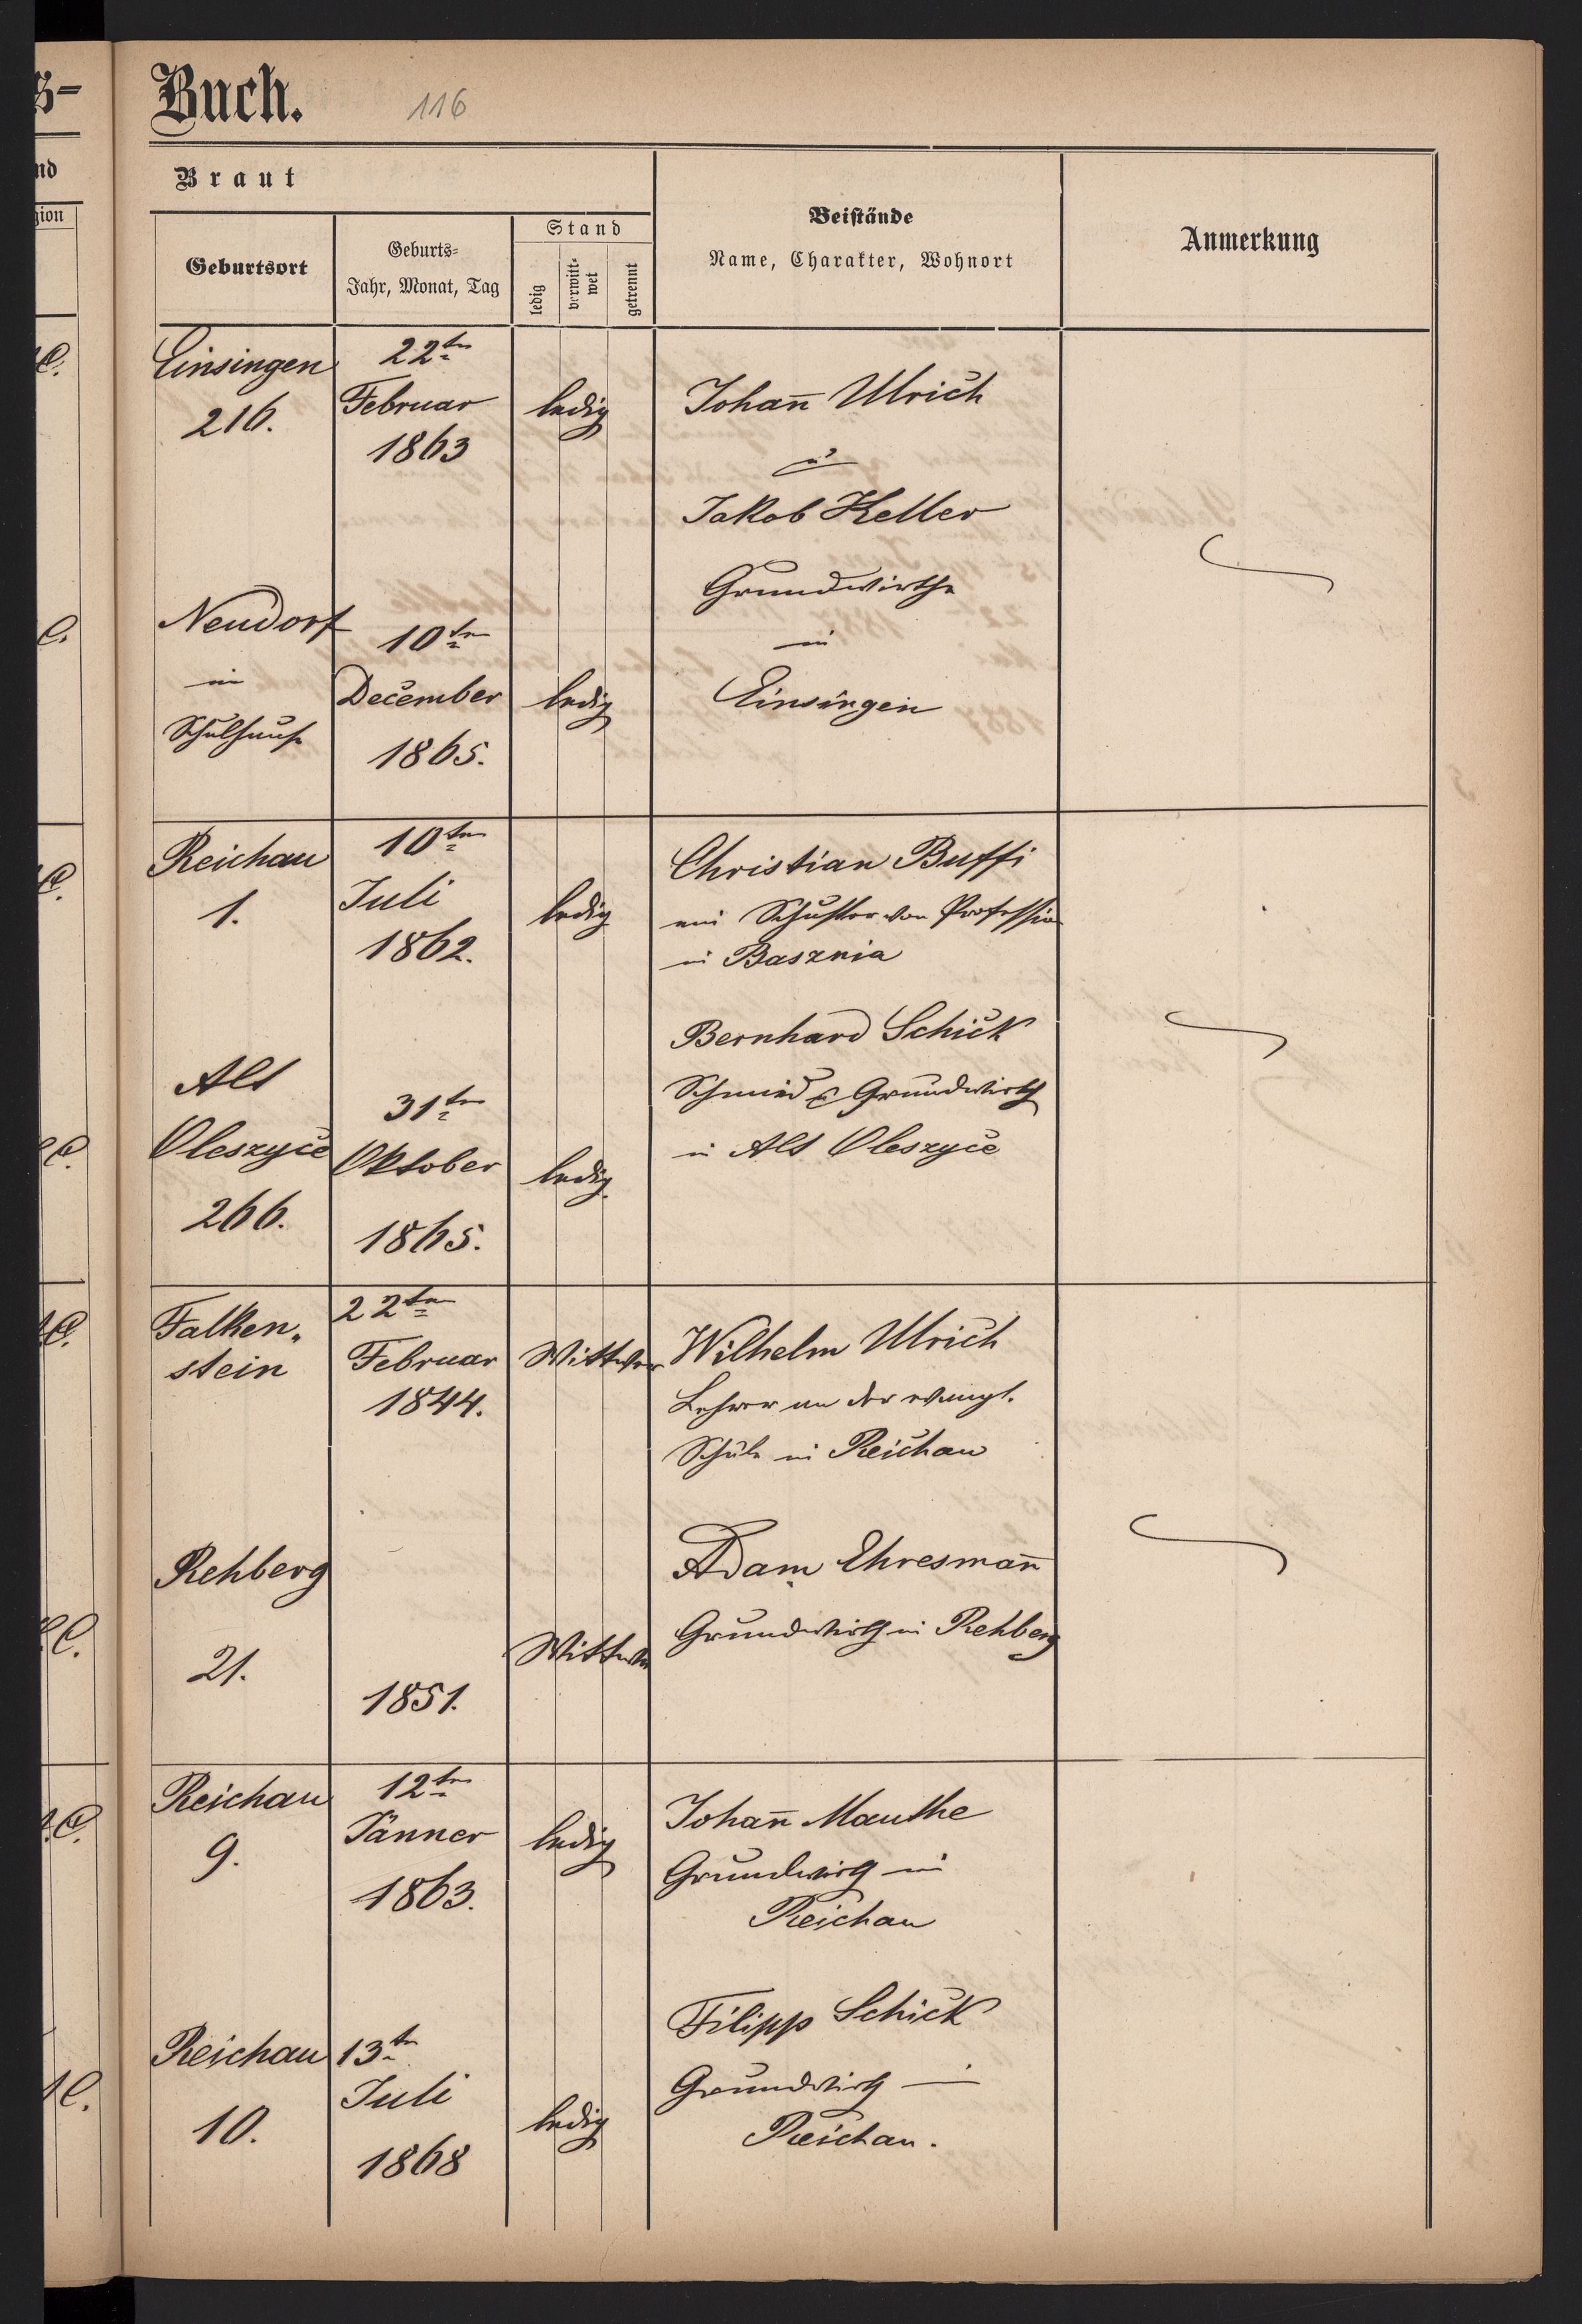 Buch.
116
Braut
Geburtsort
Geburts-
Jahr, Monat, Tag
Stand
ledig
verwitt-
wet
getrennt
Beistände
Name, Charakter, Wohnort
Anmerkung
Einsingen
216.
22ten
Februar
1863
ledig
Johan̄ Ulrich
u
Jakob Keller
Grundwirthe
in
Einsingen
Neudorf
im
Schulhause
10ten
December
1865.
ledig
Reichau
1.
10ten
Juli
1862.
ledig
Christian Buffi
ein Schuster von Profession
in Basznia
Bernhard Schick
Schmied & Grundwirth
in Alt Oleszyce
Alt
Oleszyce
266.
31ten
Oktober
1865.
ledig.
Falken-
stein
22ten
Februar
1844.
Wittwer
Wilhelm Ulrich
Lehrer an der evangl.
Schule in Reichau
Rehberg
21.
1851.
Wittwe
Adam Ehresman̄
Grundwirth in Rehberg
Reichau
9.
12ten
Jänner
1863.
ledig
Johan̄ Manthe
Grundwirth in
Reichau
Reichau
10.
13ten
Juli
1868
ledig
Filipp Schick
Grundwirth in
Reichau.
s-
nd
gion
C.
C.
C.
C.
C.
C.
C.
C.